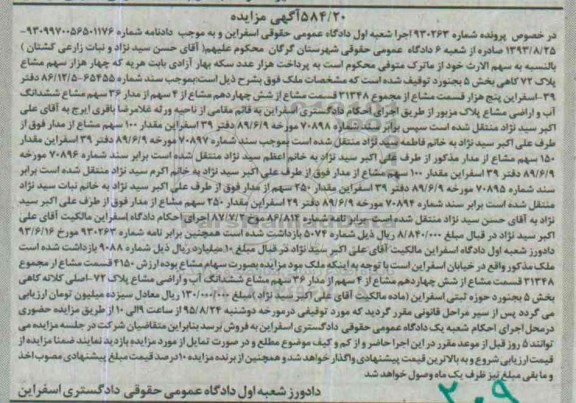 ۵۸۴/۲۰آگهی مزایده
در خصوص پرونده شماره ۹۳۰۲۶۳ اجرا شعبه اول دادگاه عمومی حقوقی اسفراین و به موجب دادنامه شماره ۹۳۰۹۹۷۰۰۵۶۵۰۱۱۷۶-
۱۳۹۳/۸/۲۵ صادره از شعبه ۶ دادگاه عمومی حقوقی شهرستان گرگان محکوم علیهم( آقای حسن سید نژاد و نبات زارعی کشتان )
بالنسبه به سهم الارث خود از ماترک متوفی محکوم است به پرداخت هزار عدد سکه بهار آزادی بابت هریه که چهار هزار سهم مشاع
پلاک ۷۲ کلاهی بخش ۵ بجنورد توقیف شده است که مشخصات ملک فوق بشرح ذیل است:بموجب سند شماره ۶۵۴۵۵-۸۶/۱۲/۵ دفتر
۳۹-اسفراین پنج هزار قسمت مشاع از مجموع ۳۱۳۴۸ قسمت مشاع از شش چهاردهم مشاع از ۴ سهم از مدار ۳۶ سهم مشاع ششدانگ
آب و اراضی مشاع پلاک مزبور از طریق اجرای احکام دادگستری اسفراین به قائم مقامی از ناحیه ورثه غلامرضا باقری ایرج به آقای علی
اکبر سید نژاد منتقل شده است سپس برابر سند شماره ۷۰۸۹۸ مورخه ۸۹/۶/۹ دفتر ۳۹ اسفراین مقدار ۱۰۰ سهم مشاع از مدار فوق از
طرف علی اکبر سید نژاد به خانم فاطمه سید نژاد منتقل شده است بموجب سند شماره ۷۰۸۹۷ مورخه ۸۹/۶/۹ دفتر ۳۹ اسفراین مقدار
۱۵۰ سهم مشاع از مدار مذکور از طرف علی اکبر سید نژاد به خانم اعظم سید نژاد منتقل شده است برابر سند شماره ۷۰۸۹۶ مورخه
۸۹/۶/۹ دفتر ۳۹ اسفراین مقدار ۱۰۰ سهم مشاع از مدار فوق از طرف علی اکبر سید نژاد به خانم اکرم سید نژاد منتقل شده است برابر
سند شماره ۷۰۸۹۵ مورخه ۸۹/۶/۹ دفتر ۳۹ اسفراین مقدار ۲۵۰ سهم از مدار فوق از طرف علی اکبر سید نژاد به خانم نبات سید نژاد
منتقل شده است برابر سند شماره ۷۰۸۹۴ مورخه ۸۹/۶/۹ دفتر ۲۹ اسفراین مقدار ۲۵۰ سهم مشاع از مدار فوق از طرف علی اکبر سید
نژاد به آقای حسن سید نژاد منتقل شده است برابر نامه شماره ۸۶/۸۱۲ موخ ۸۷/۷/۲ اجرای احکام دادگاه اسفراین مالکیت آقای علی
اکبر سید نژاد در قبال مبلغ ۸/۸۴۰/۰۰۰ ریال ذیل شماره ۵۰۷۴ بازداشت شده است همچنین برابر نامه شماره ۹۳۰۲۶۳ مورخ ۹۳/۶/۱۶
دادورز شعبه اول دادگاه اسفراین مالکیت آقای علی اکبر سید نژاد در قبال مبلغ ۱۰میلیارد ریال ذیل شماره ۹۰۸۸ بازداشت شده است
ملک مذکور واقع در خیابان اسفراین است با توجه به اینکه ملک مورد مزایده بصورت سهام مشاع بوده ارزش ۴۱۵۰ قسمت مشاع از مجموع
۳۱۳۴۸ قسمت مشاع از شش چهاردهم مشاع از ۴ سهم از مدار ۳۶ سهم مشاع ششدانگ آب و اراضی مشاع پلاک ۷۲-اصلی کلاته کاهی
بخش ۵ بجنورد حوزه ثبتی اسفراین (ماده مالکیت آقای علی اکبر سید نژاد )مبلغ ۱۳۰/۰۰۰/۰۰۰ ریال معادل سیزده میلیون تومان ارزیابی
می گردد پس از سیر مراحل قانونی مقرر گردید که مورد توقیفی در مورخه دوشنبه ۹۵/۸/۲۴ از ساعت ۹الی ۱۰ از طریق مزایده حضوری
در محل اجرای احکام شعبه یک دادگاه عمومی حقوقی دادگستری اسفراین به فروش برسد بنابراین متقاضیان شرکت در جلسه مزایده می
توانند ۵ روز قبل از موعد مقرر در این اجرا حاضر و از کم و کیف موضوع مطلع و در صورت تمایل از مورد مزایده بازدید نمایند ضمنا مزایده از
قیمت ارزیابی شروع و به بالاترین قیمت پیشنهادی واگذار خواهد شد و همچنین از برنده مزایده ۱۰درصد قیمت مبلغ پیشنهادی مصوب اخذ
و ما بقی مبلغ نیز ظرف یک ماه وصول خواهد شد
دادورز شعبه اول دادگاه عمومی حقوقی دادگستری اسفراین
۲۰۹